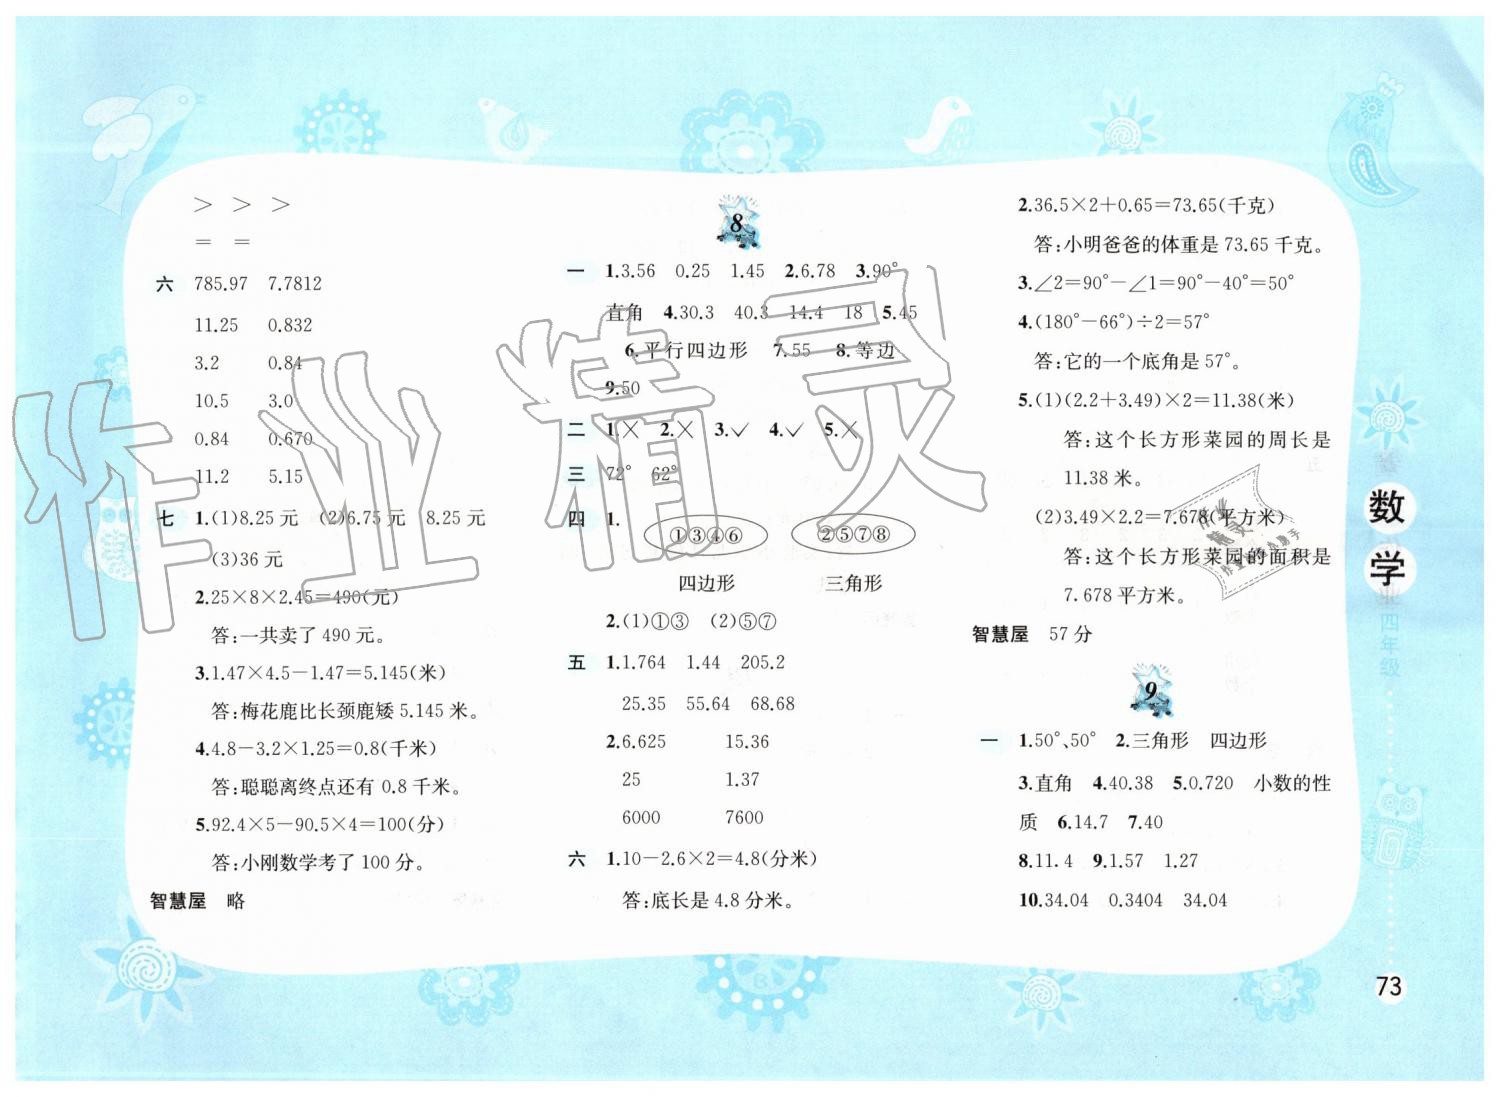 ＞ ＞ ＞
＝ ＝
六 785.97 7.7812
11.25 0.832
3.2 0.84
10.5 3.0
0.84 0.670
11.2 5.15
七 1.(1)8.25元 (2)6.75元 8.25元
(3)36元
2.25×8×2.45=490(元)
答:一共卖了490元。
3.1.47×4.5-1.47=5.145(米)
答:梅花鹿比长颈鹿矮5.145米。
4.4.8-3.2×1.25=0.8(千米)
答:聪聪离终点还有0.8千米。
5.92.4×5-90.5×4=100(分)
答:小刚数学考了100分。
智慧屋 略
8
一 1.3.56 0.25 1.45 2.6.78 3.90°
直角 4.30.3 40.3 14.4 18 5.45
6.平行四边形 7.55 8.等边
9.50
二 1.× 2.× 3.✓ 4.✓ 5.×
三 72° 62°
四 1. ①③④⑥ ②⑤⑦⑧
四边形 三角形
2.(1)①③ (2)⑤⑦
五 1.1.764 1.44 205.2
25.35 55.64 68.68
2.6.625 15.36
25 1.37
6000 7600
六 1.10-2.6×2=4.8(分米)
答:底长是4.8分米。
2.36.5×2+0.65=73.65(千克)
答:小明爸爸的体重是73.65千克。
3.∠2=90°-∠1=90°-40°=50°
4.(180°-66°)÷2=57°
答:它的一个底角是57°。
5.(1)(2.2+3.49)×2=11.38(米)
答:这个长方形菜园的周长是
11.38米。
(2)3.49×2.2=7.678(平方米)
答:这个长方形菜园的面积是
7.678平方米。
智慧屋 57分
9
一 1.50°、50° 2.三角形 四边形
3.直角 4.40.38 5.0.720 小数的性
质 6.14.7 7.40
8.11.4 9.1.57 1.27
10.34.04 0.3404 34.04
数学
四年级
73
作业精灵